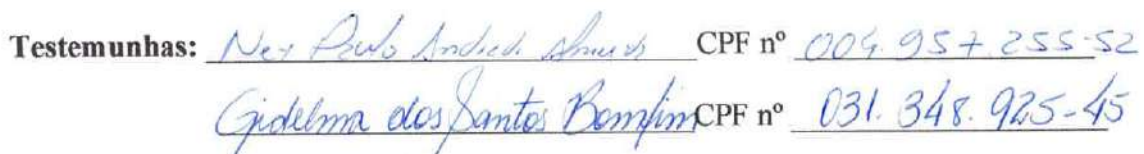 Testemunhas: Ney Paulo Andrade Almeida CPF nº 004.957.255-52
Gidelma dos Santos Bomfim CPF nº 031.348.925-45